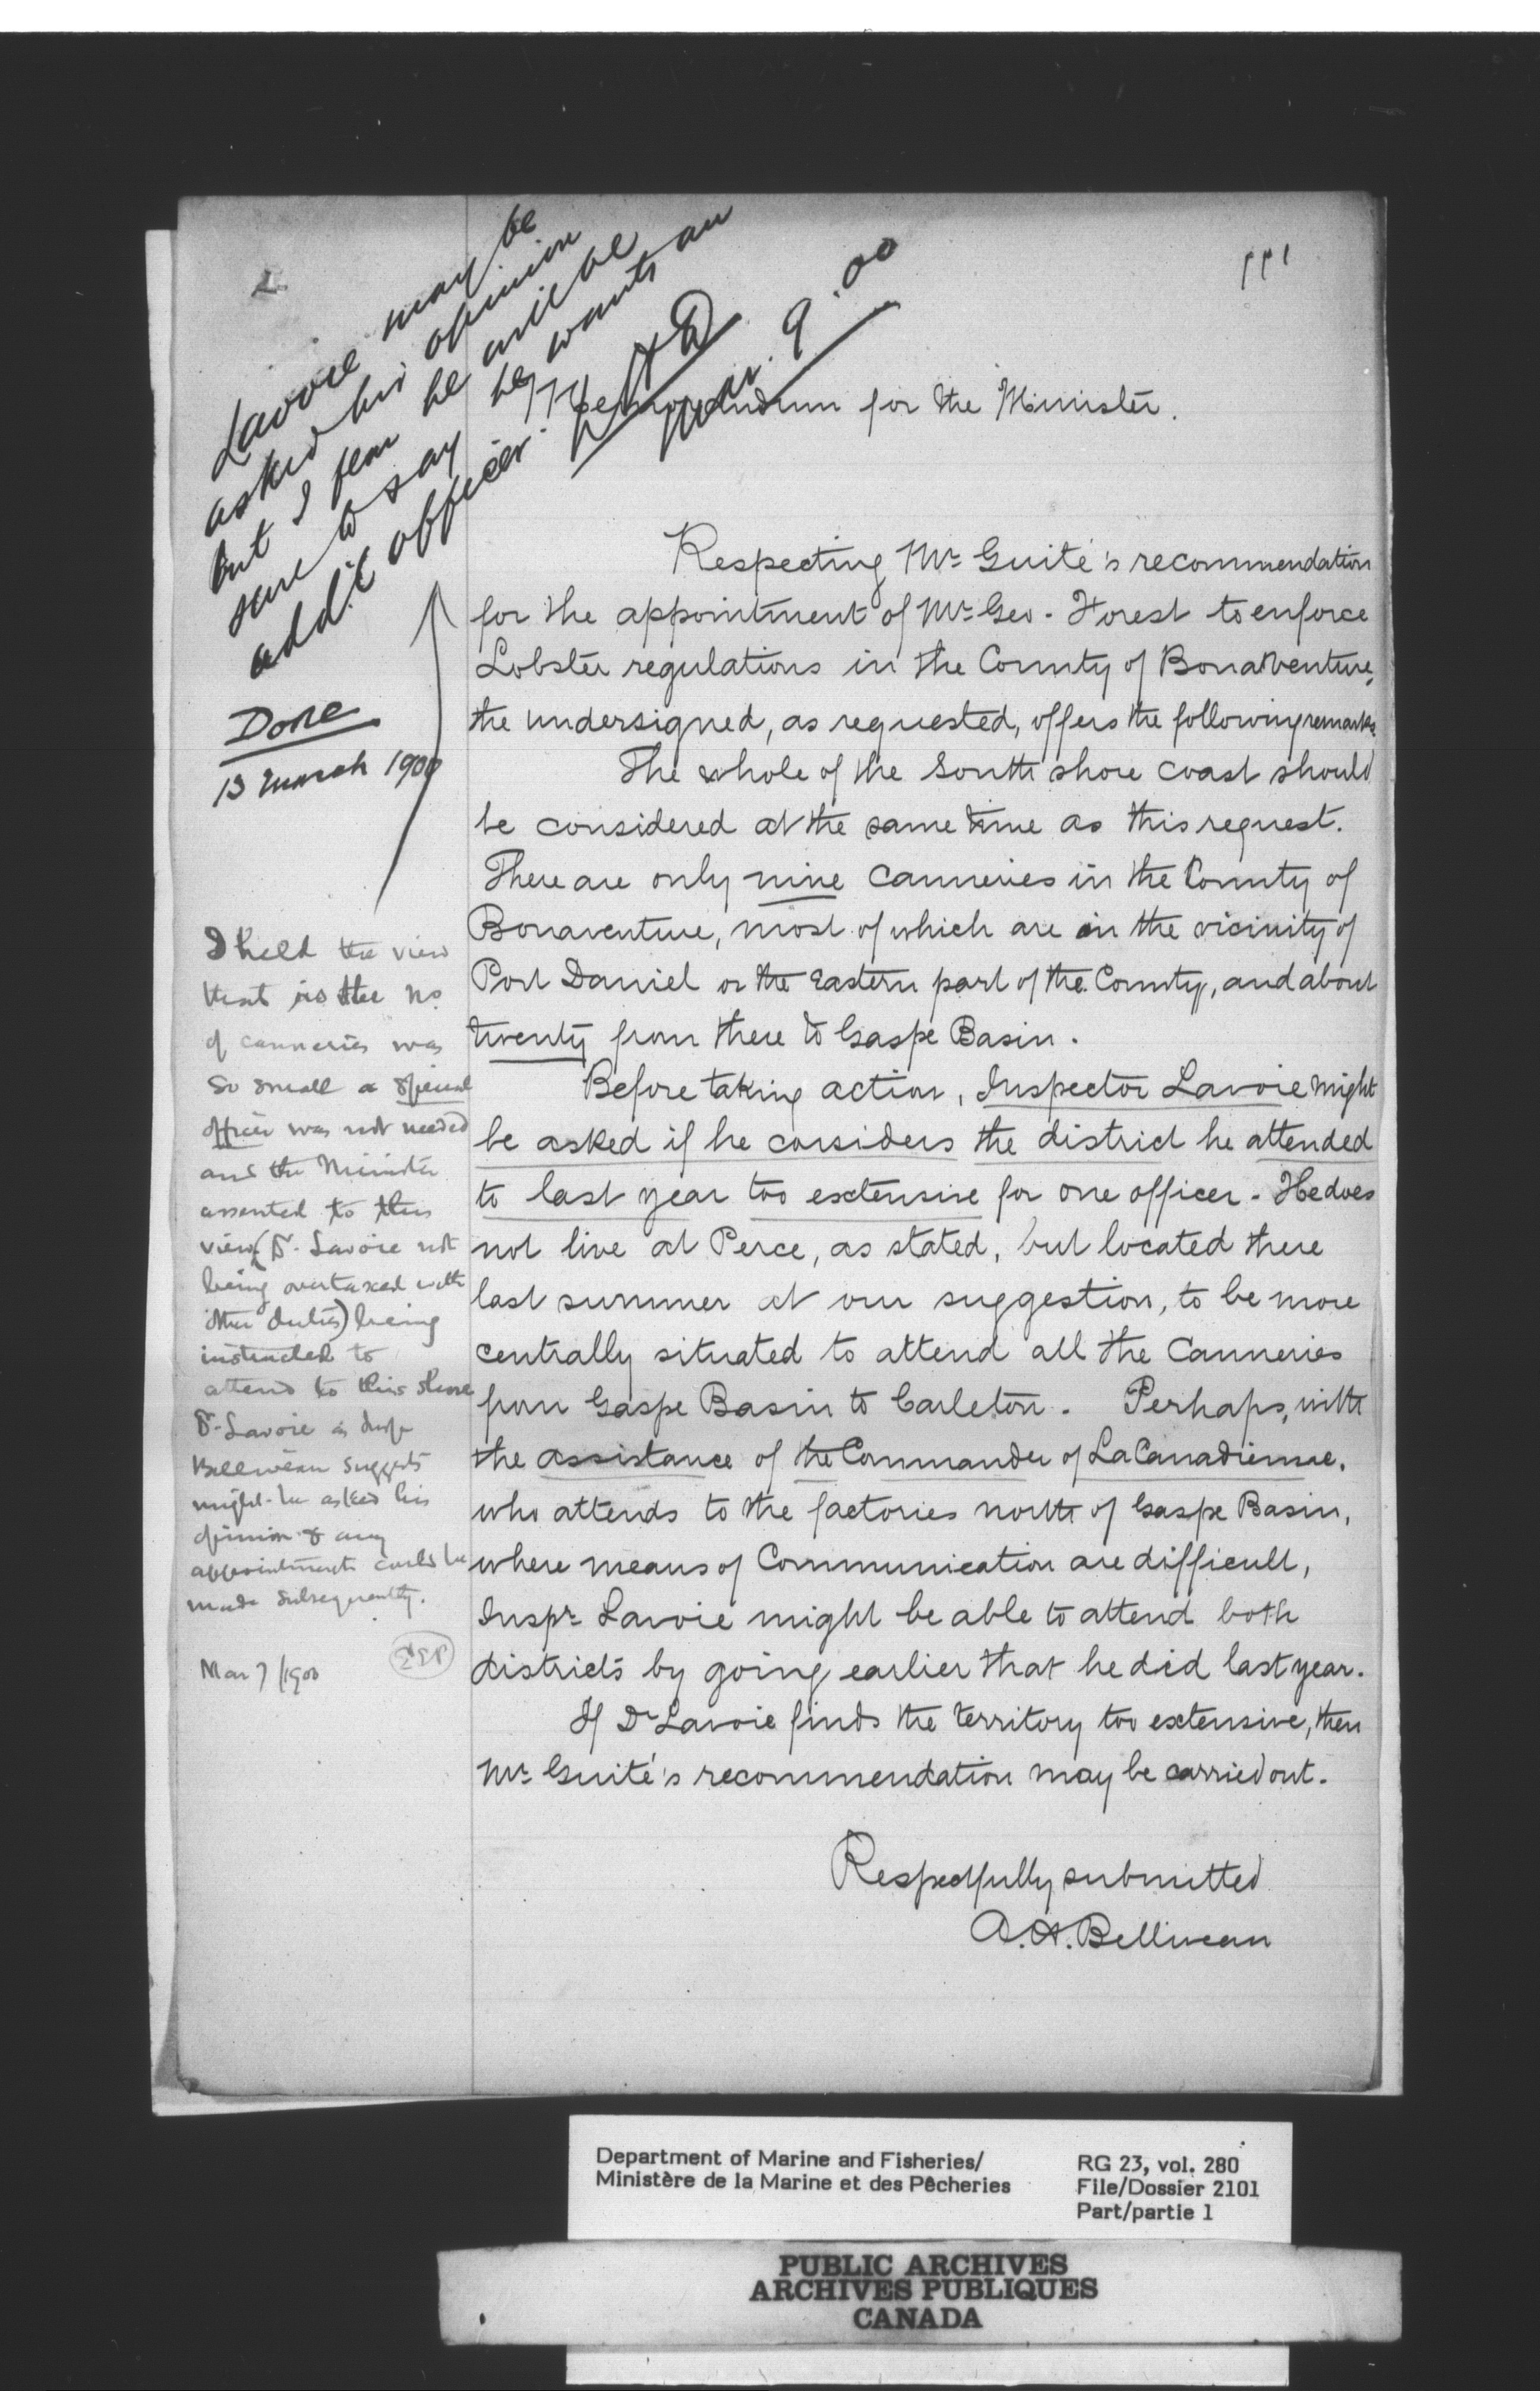 Lavoie may be
asked his opinion
but I fear he will be
sure to say he wants an
addl officer.
Mar. 9. 00
Done
13 march 1900
111
Memorandum for the Minister.
Respecting Mr. Guité's recommendation
for the appointment of Mr. Geo. Forest to enforce
Lobster regulations in the County of Bonaventure,
the undersigned, as requested, offers the following remarks.
The whole of the South shore coast should
be considered at the same time as this request.
There are only nine canneries in the County of
Bonaventure, most of which are in the vicinity of
Port Daniel or the Eastern part of the County, and about
twenty from there to Gaspe Basin.
Before taking action, Inspector Lavoie might
be asked if he considers the district he attended
to last year too extensive for one officer. He does
not live at Perce, as stated, but located there
last summer at our suggestion, to be more
centrally situated to attend all the Canneries
from Gaspe Basin to Carleton. Perhaps, with
the assistance of the Commander of La Canadienne,
who attends to the factories north of Gaspe Basin,
where means of Communication are difficult,
Inspr. Lavoie might be able to attend both
districts by going earlier that he did last year.
If Dr Lavoie finds the territory too extensive, then
Mr. Guité's recommendation may be carried out.
Respectfully submitted
A. H. Belliveau
I held the view
that as the no.
of canneries was
so small a special
officer was not needed
and the Minister
assented to this
view (Dr. Lavoie not
being overtaxed with
other duties) being
instructed to
attend to this shore
Dr. Lavoie as Insp
Belliveau suggests
might be asked his
opinion & any
appointment could be
made subsequently.
Mar 7/1900 EEP
Department of Marine and Fisheries/
Ministère de la Marine et des Pêcheries
RG 23, vol. 280
File/Dossier 2101
Part/partie 1
PUBLIC ARCHIVES
ARCHIVES PUBLIQUES
CANADA